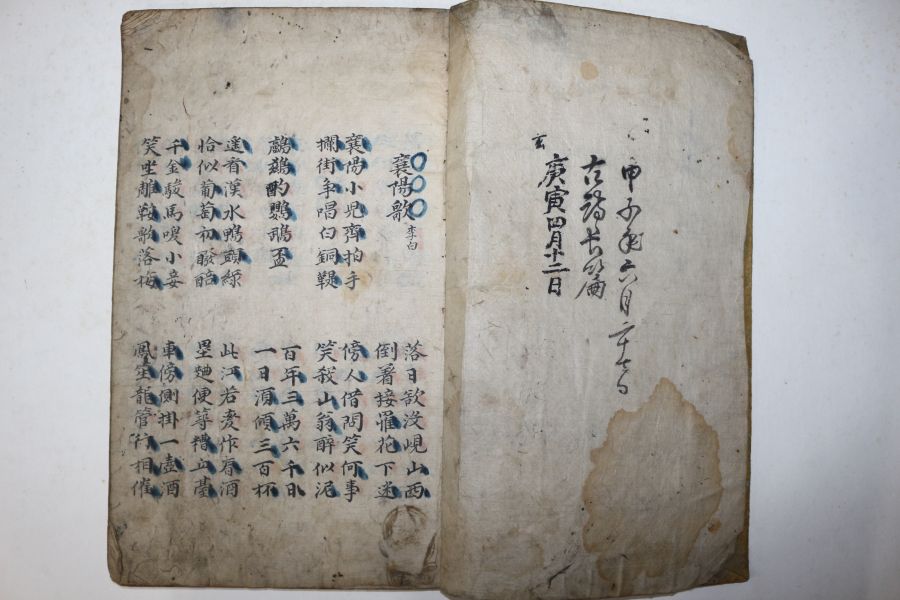 甲子年六月二十七日
古詩長篇
庚寅四月十二日
玄
襄陽歌 李白
落日欲沒峴山西
倒著接罹花下迷
襄陽小兒齊拍手
攔街争唱白銅鞮
傍人借問笑何事
笑殺山翁醉似泥
鸕鶿酌鸚鵡盃
百年三萬六千日
一日須傾三百杯
遙看漢水鴨頭綠
恰似葡萄初醱醅
此江若變作春酒
壘麯便築糟丘臺
千金駿馬喚小妾
笑坐雕鞍歌落梅
車傍側掛一壺酒
鳳笙龍管行相催